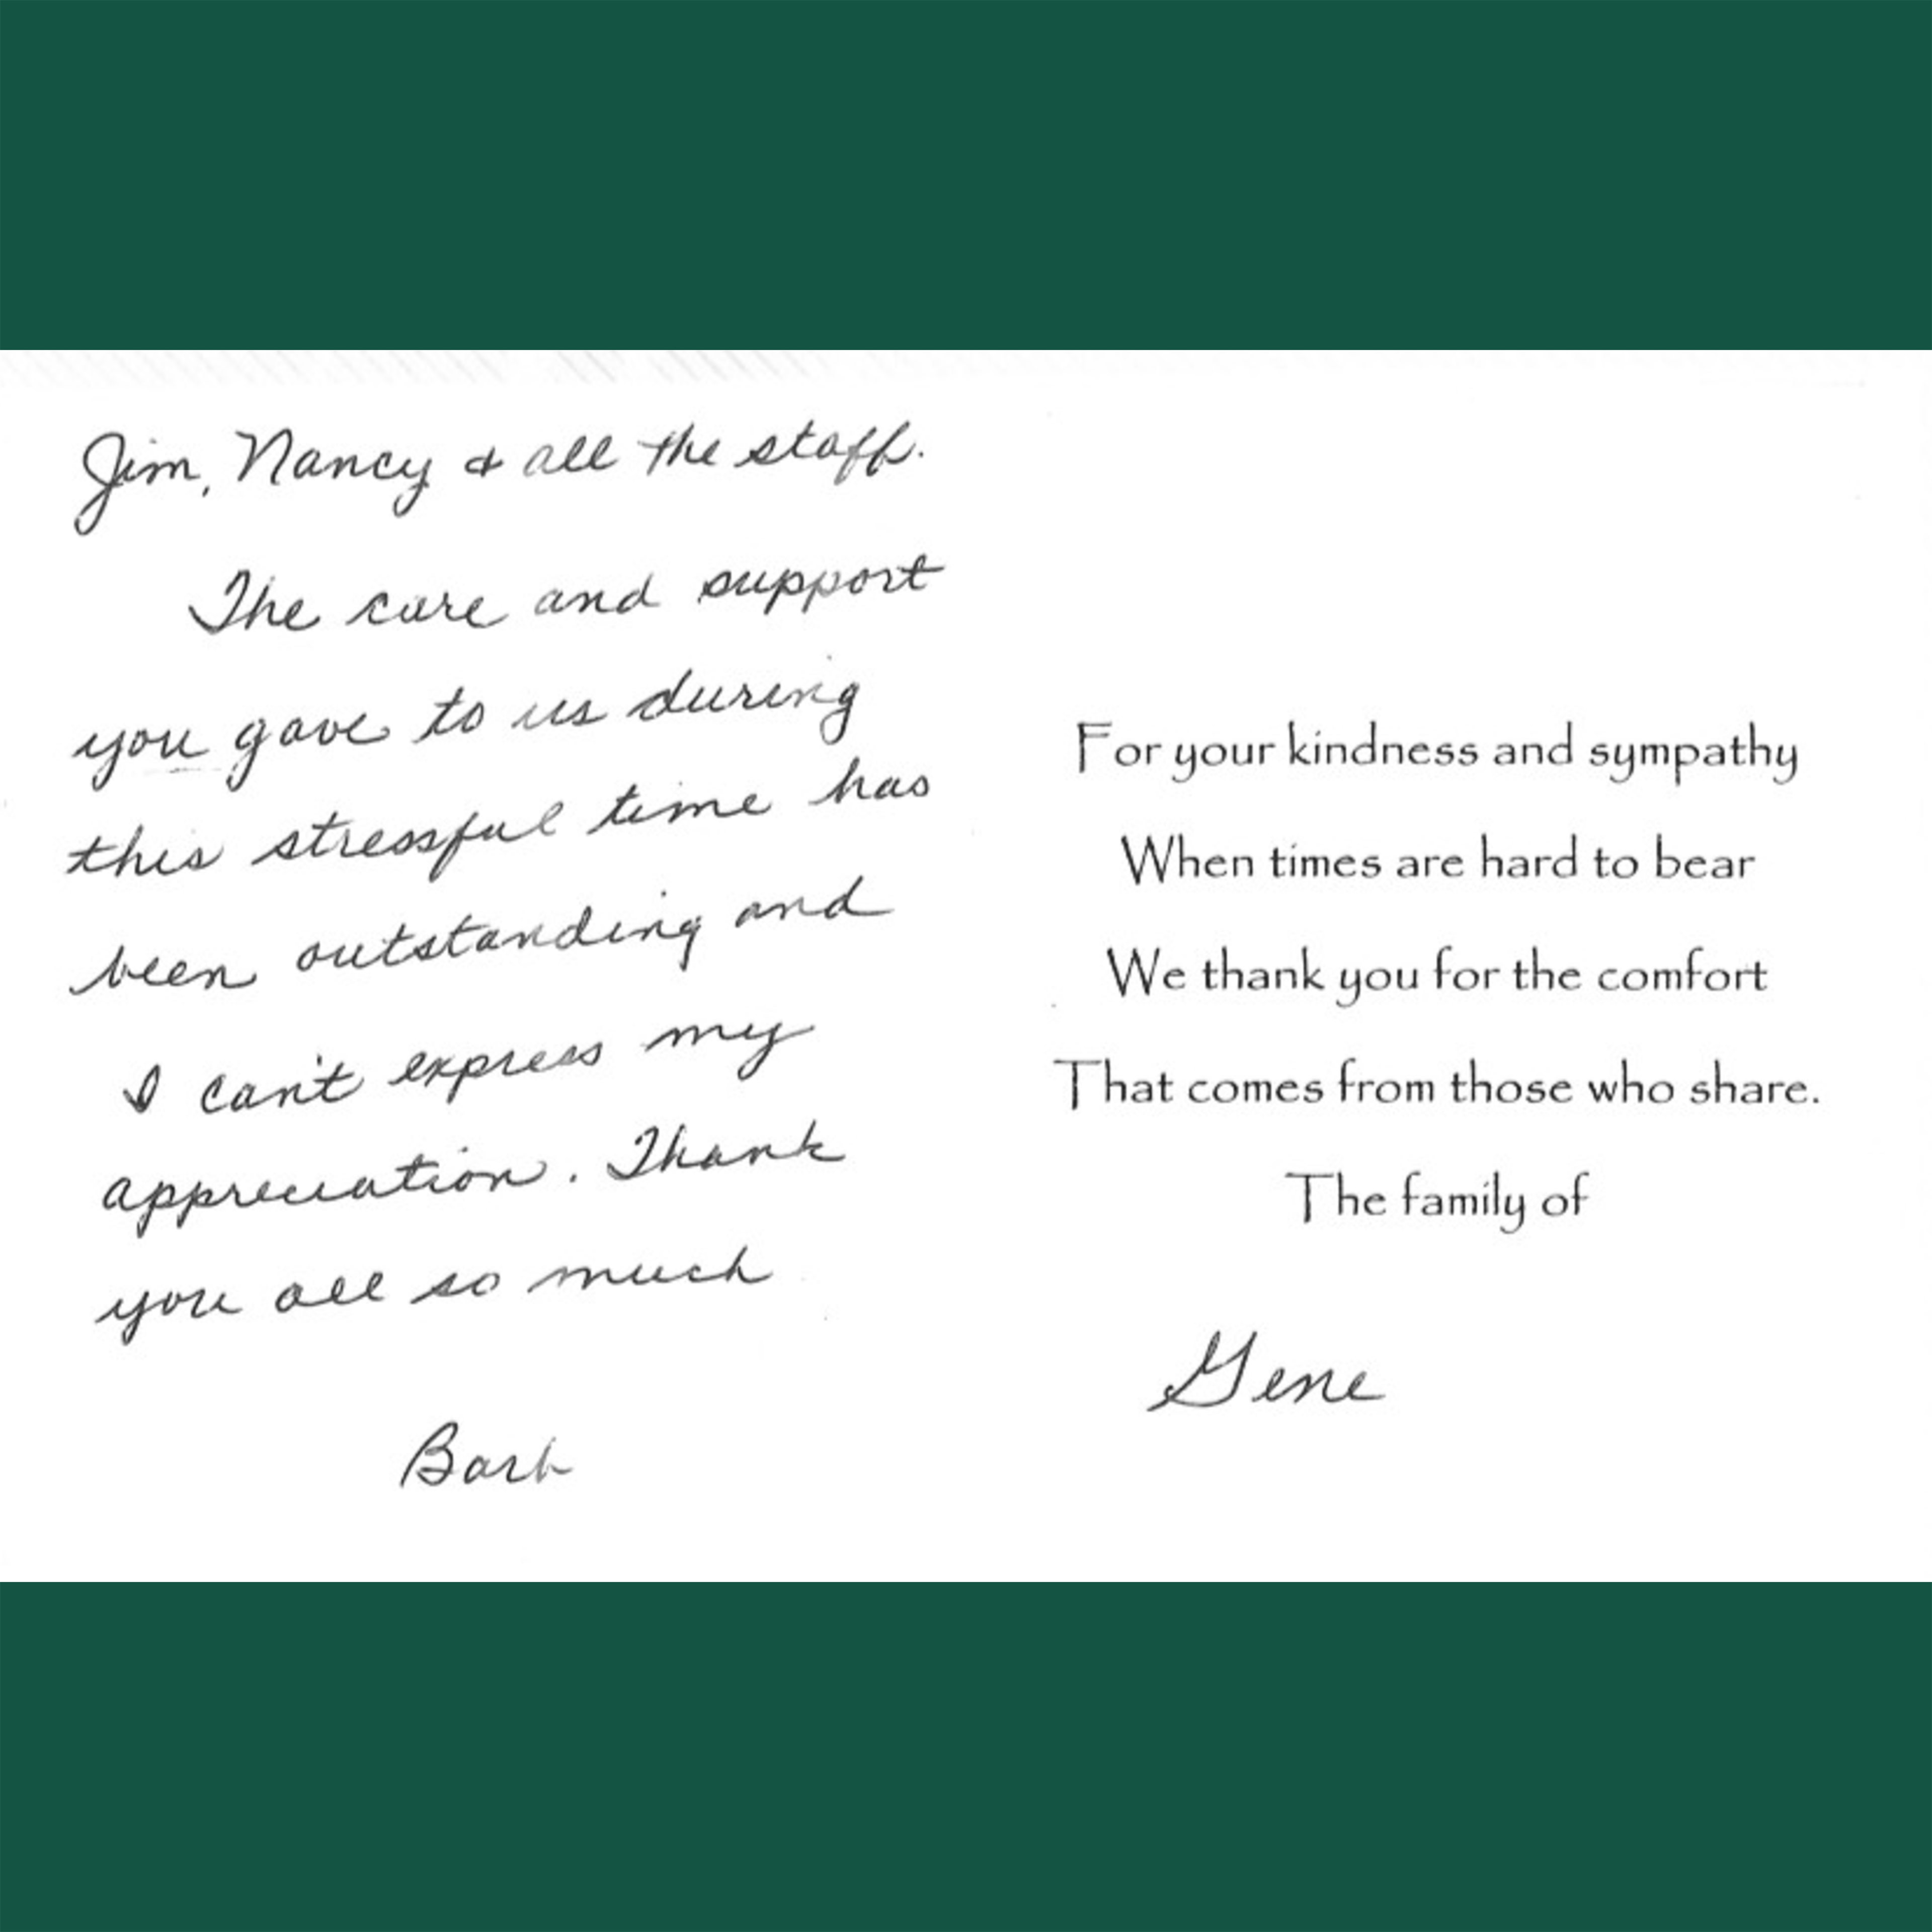 Jim, Nancy & all the staff.
The care and support
you gave to us during
this stressful time has
been outstanding and
I can't express my
appreciation. Thank
you all so much
Barb
For your kindness and sympathy
When times are hard to bear
We thank you for the comfort
That comes from those who share.
The family of
Gene